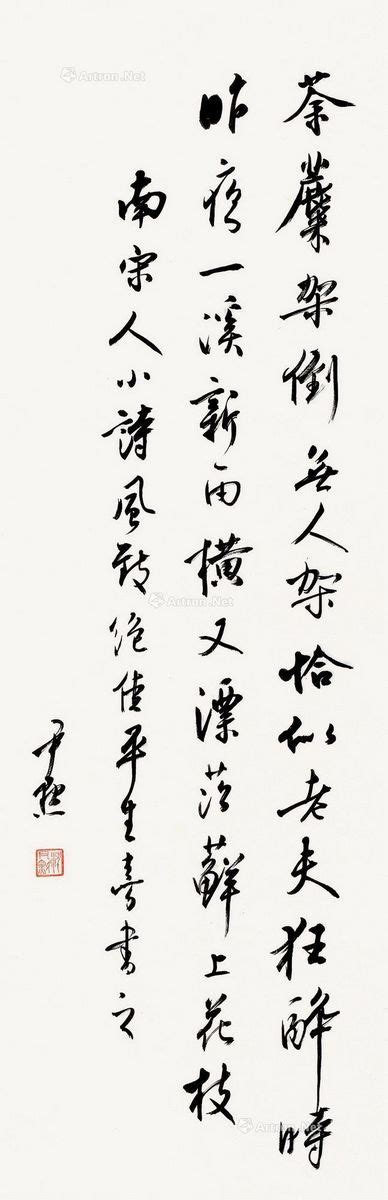 荼蘪架倒無人架恰似老夫狂醉時
昨夜一溪新雨橫又漂落蘚上花枝
南宋人小詩風致絕佳平生喜書之
尹默
Artron.Net
Artron.Net
Artron.Net